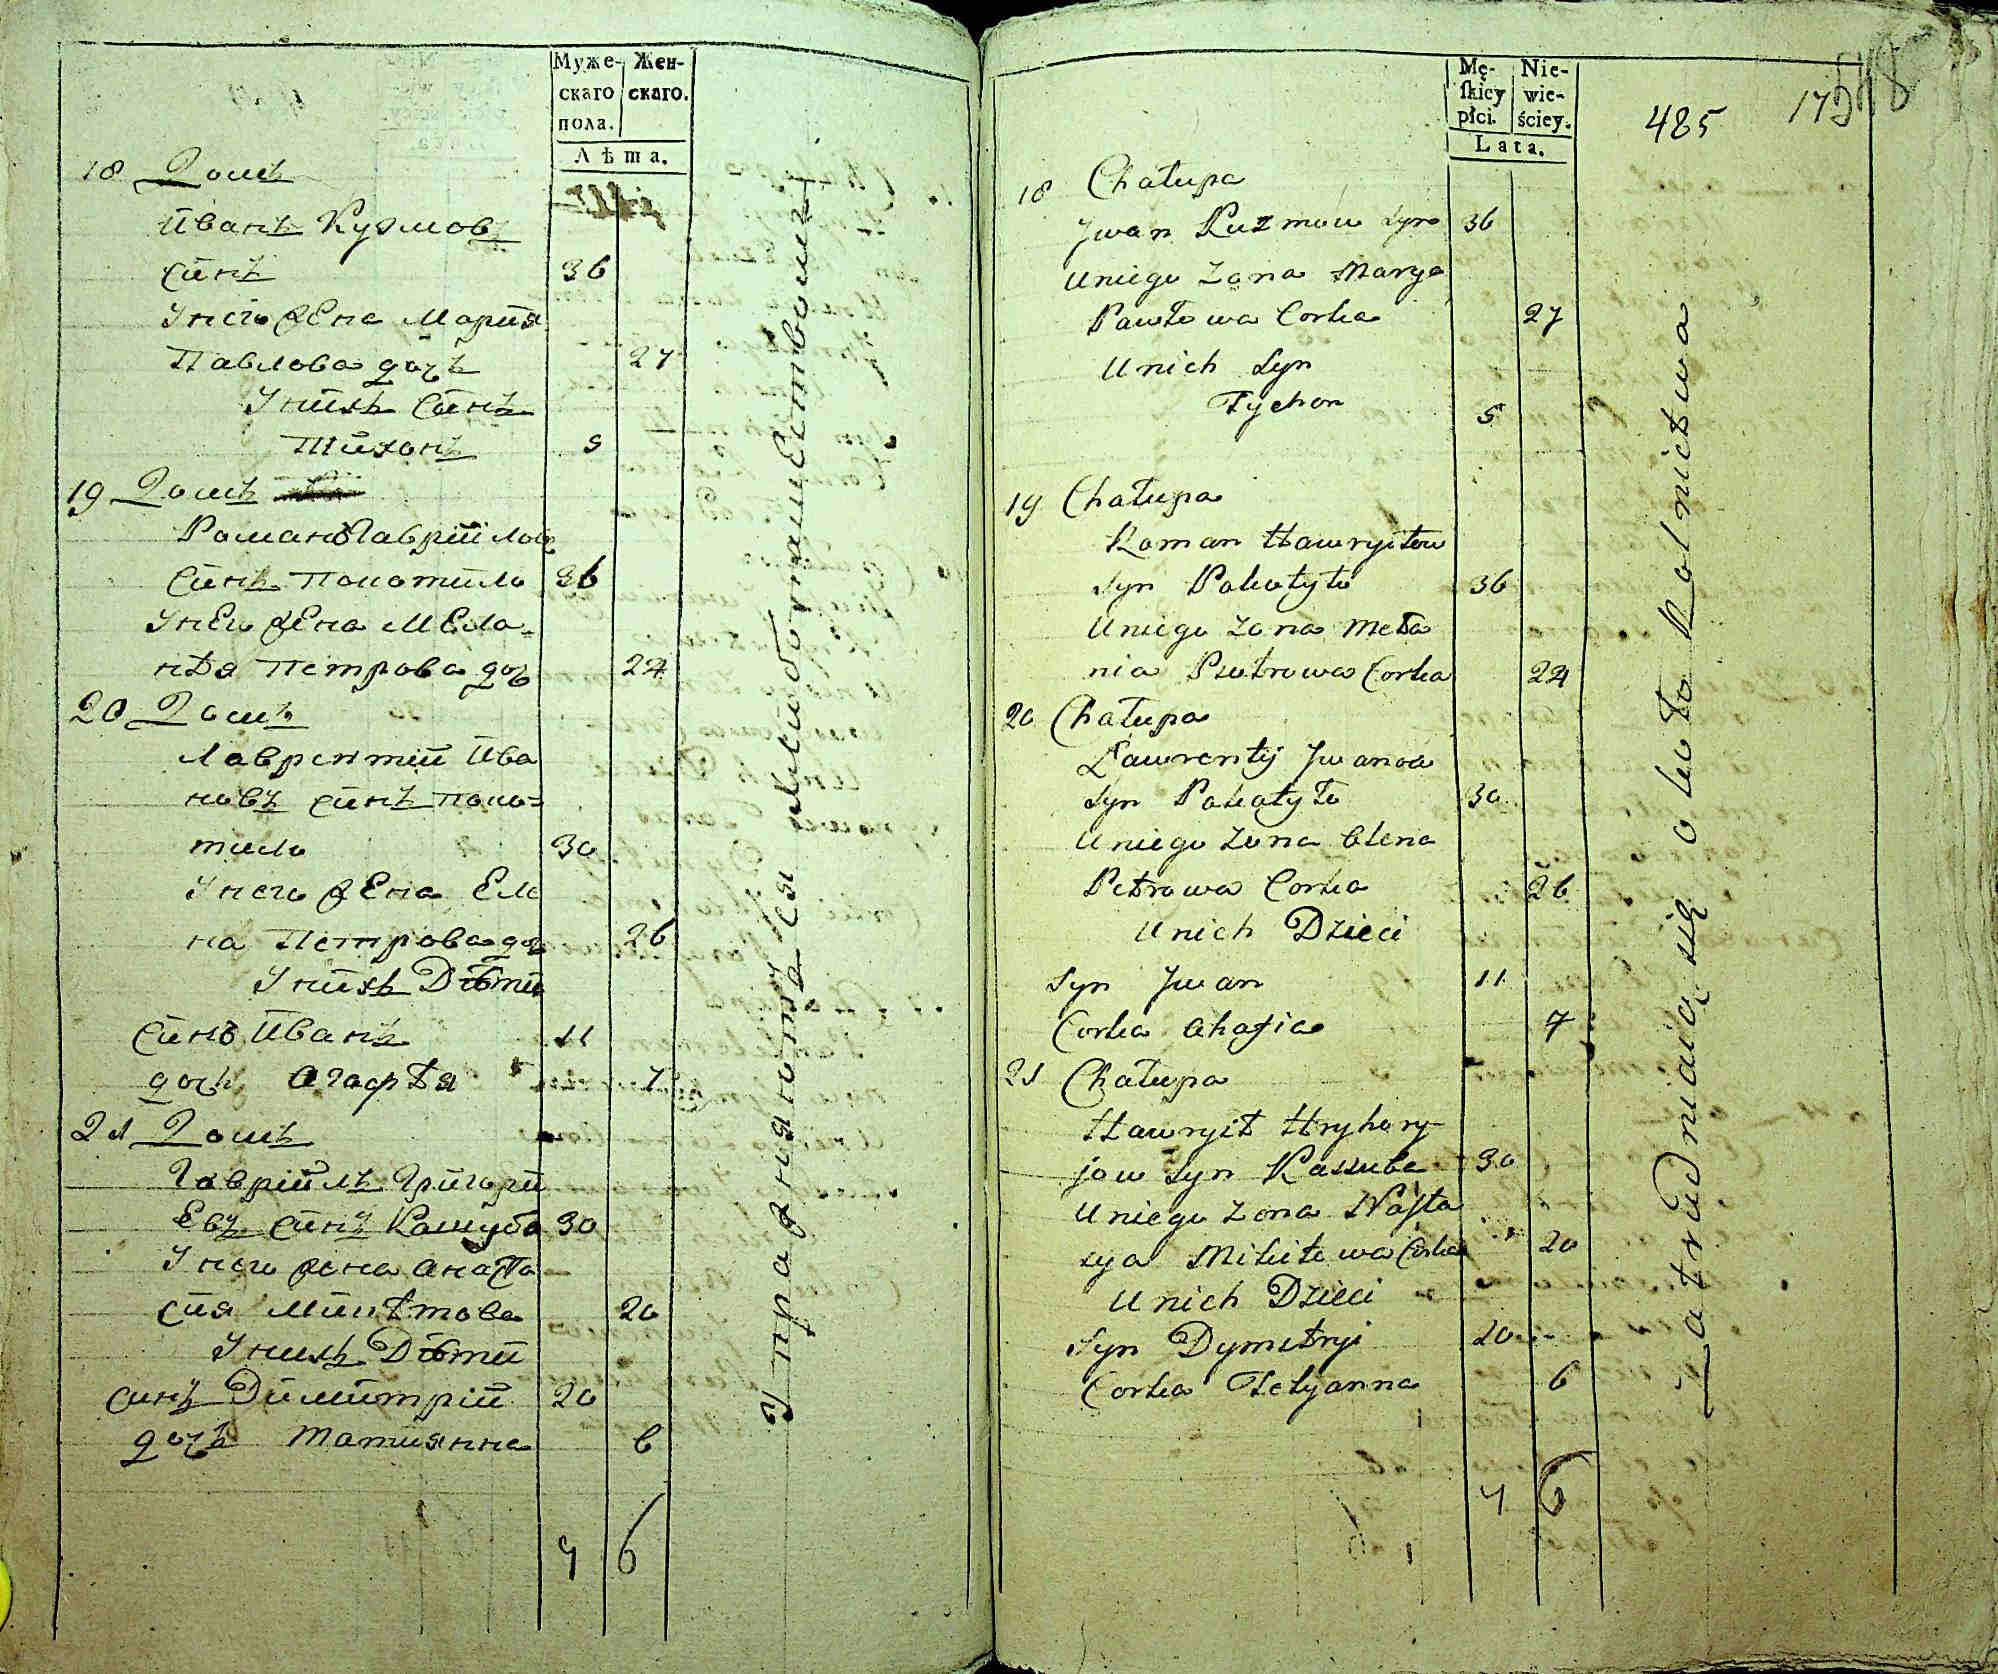 Муже-
скаго
пола.
Жен-
скаго.
Лѣта.
18 Домъ
Иванъ Кузмовъ
синъ 36
Унего жена Мария
Павлова дочъ 27
Унихъ синъ
Тихонъ 5
19 Домъ
Романъ Гаврииловъ
синъ Покотило 36
Унего жена Мела-
нѣя Петрова доч 24
20 Домъ
Лаврентий Ива
новъ синъ Поко=
тило 30
Унего жена Еле
на Петрова доч 26
Унихъ Дѣти
синъ Иванъ 11
дочъ Агафѣя 7
21 Домъ
Гавриилъ Григори
евъ синъ Кашуба 30
Унего жена Анаста
сия Микѣтова 20
Унихъ Дѣти
синъ Димитрий 20
дочъ Татиянна 6
7 6
Упражняютъся хлѣбопашествомъ
Mę-
skiey
płci.
Nie-
wie-
ściey.
Lata.
485
175
18 Chałupa
Jwan Kuzmow syn 36
Uniego Zona Marya
Pawłowa Corka 27
Unich Syn
Tychon 5
19 Chałupa
Roman Hawryłow
Syn Pokotyło 36
Uniego Zona Mela
nia Piotrowa Corka 24
20 Chałupa
Ławrentij Jwanow
Syn Pokotyło 30
Uniego Zona Elena
Petrowa Corka 26
Unich Dzieci
Syn Jwan 11
Corka Ahafia 7
21 Chałupa
Hawryił Hryhory-
jow Syn Kaszuba 30
Uniego Zona Nasta
sya Mikitowa Corka 20
Unich Dzieci
Syn Dymitryi 20
Corka Tetyanna 6
7 6
Zatrudniaią się około Rolnictwa